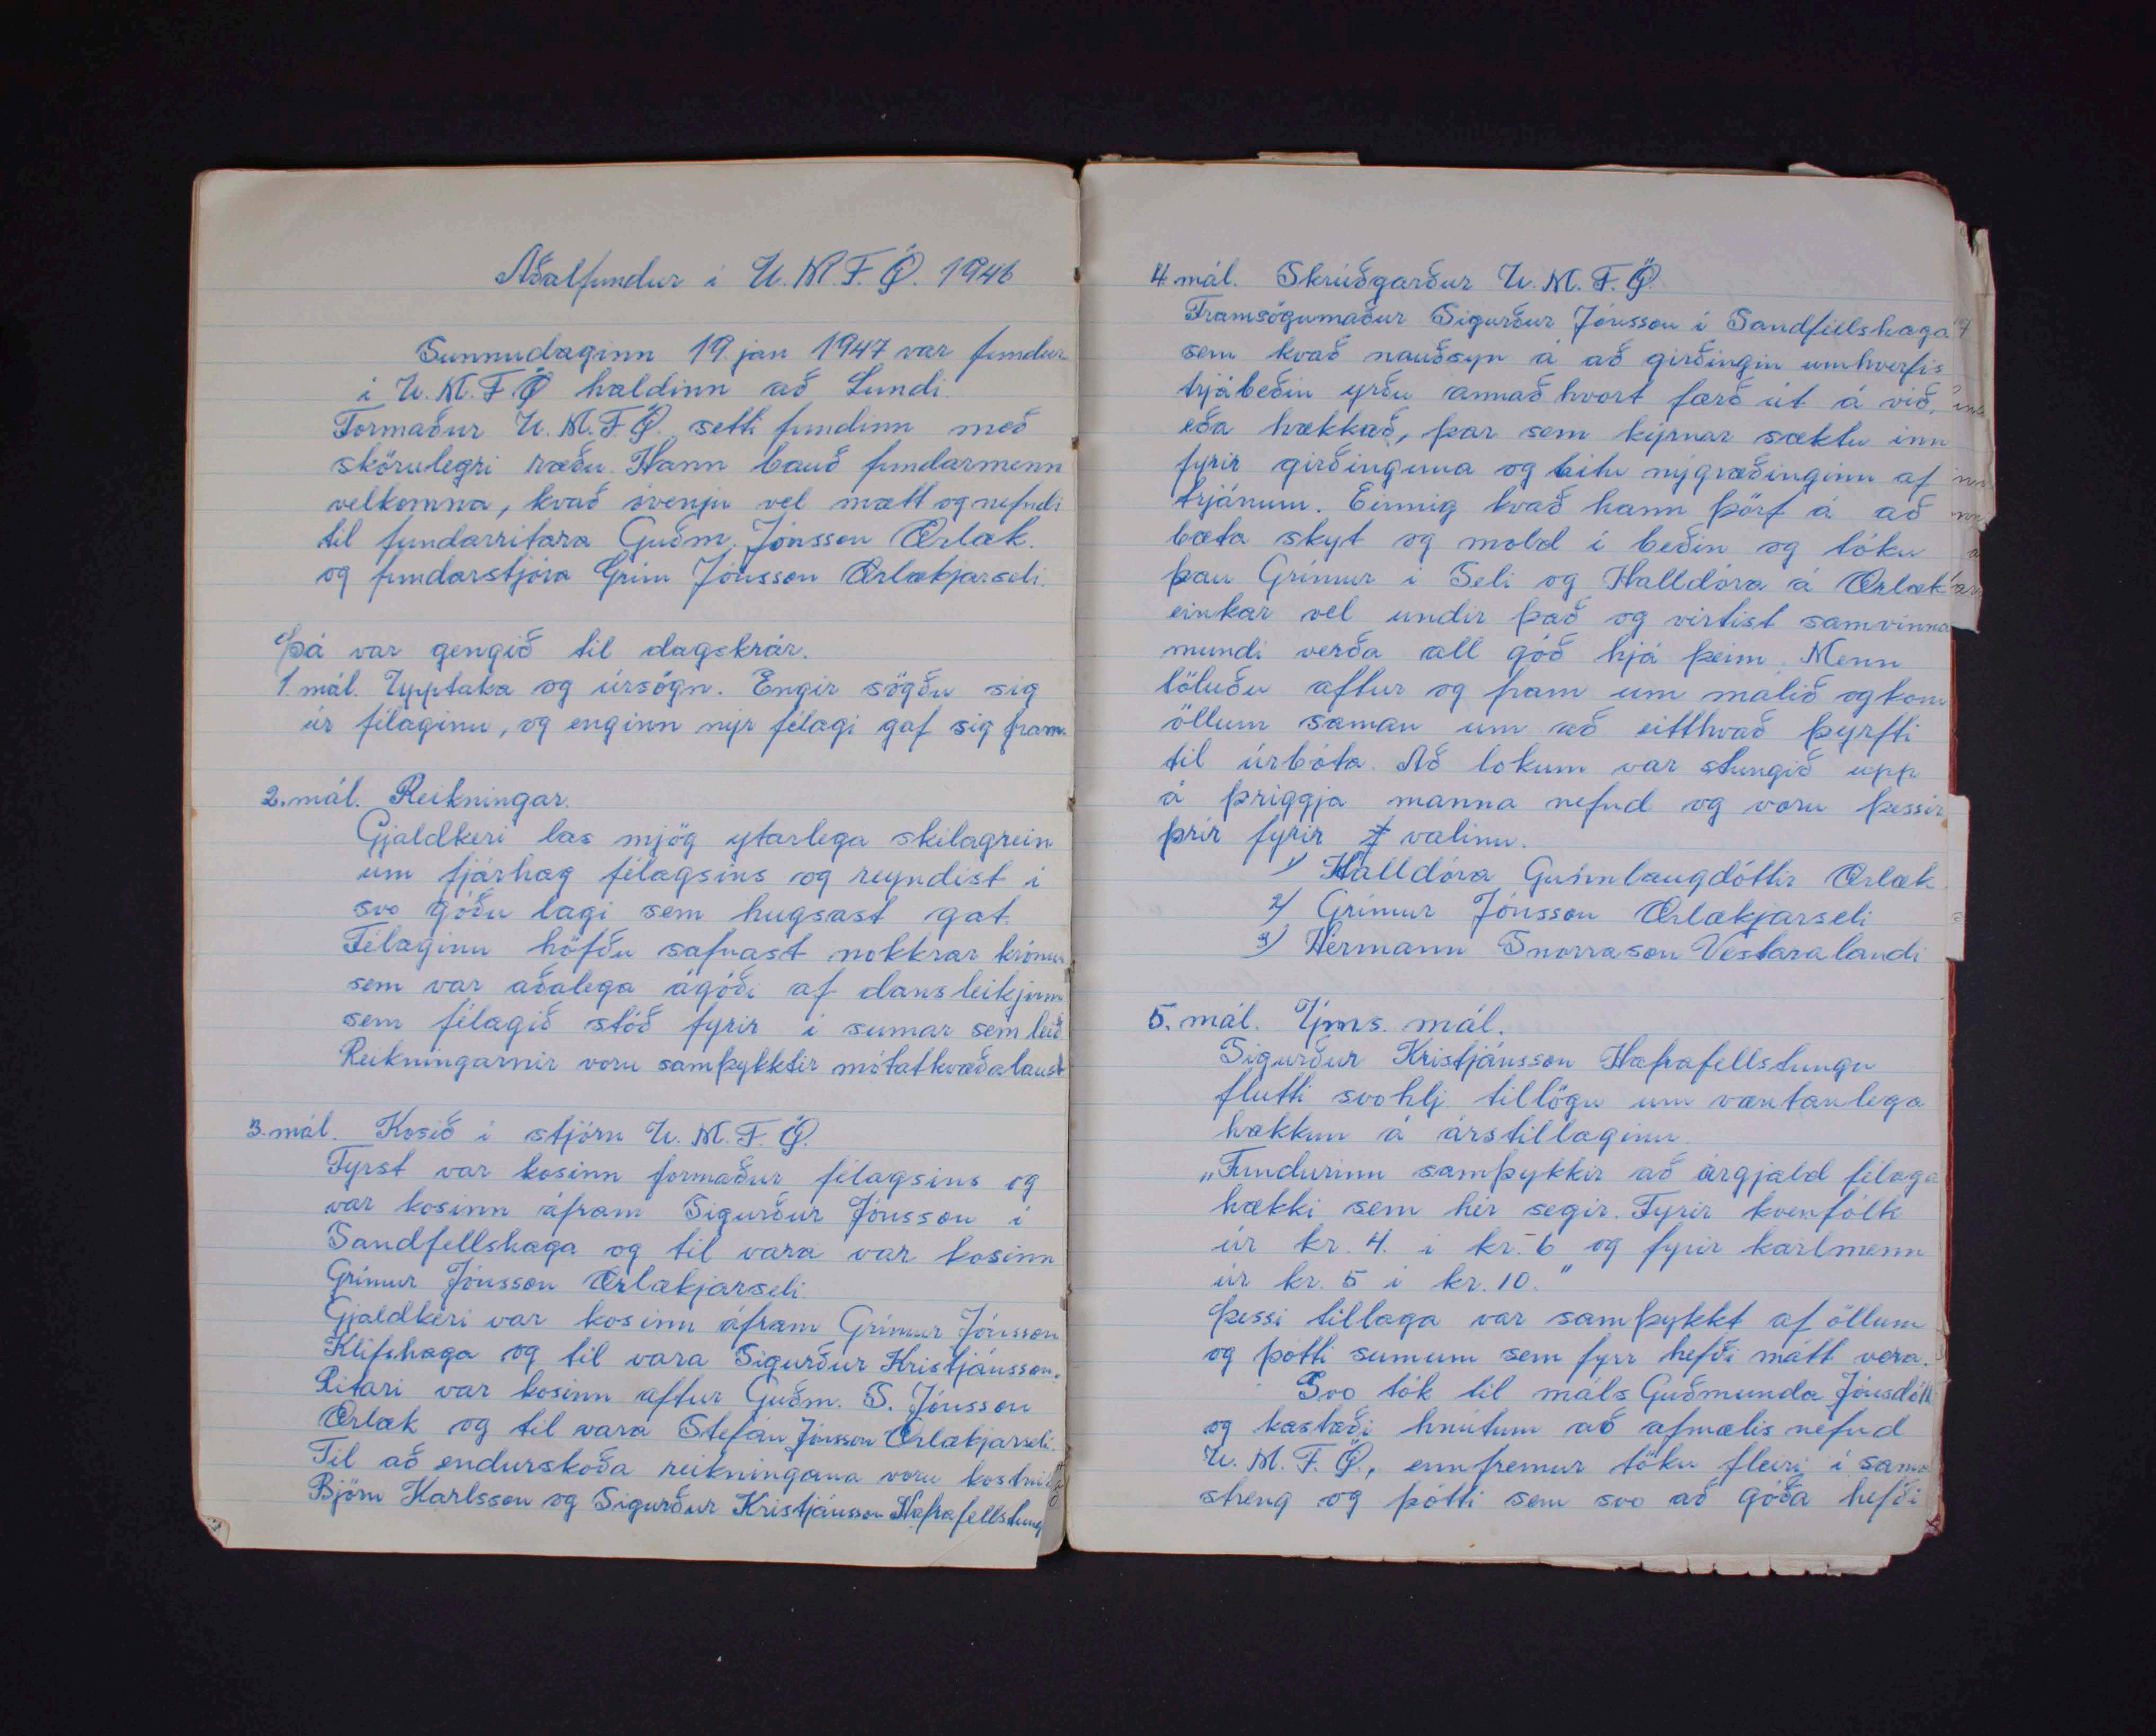 Aðalfundur í U.M.F.Ö. 1946
Sunnudaginn 19 jan 1947 var fundur
í U.M.F.Ö haldinn að Lundi.
Formaður U.M.F.Ö. setti fundinn með
skörulegri ræðu. Hann bauð fundarmenn
velkomna, kvað óvenju vel mætt og nefndi
til fundarritara Guðm. Jónsson Ærlæk.
og fundarstjóra Grím Jónsson Ærlækjarseli.
Þá var gengið til dagskrár.
1 mál. Upptaka og úrsögn. Engir sögðu sig
úr félaginu, og enginn nýr félagi gaf sig fram.
2. mál. Reikningar.
Gjaldkeri las mjög ýtarlega skilagrein
um fjárhag félagsins og reyndist í
svo góðu lagi sem hugsast gat.
Félaginu höfðu safnast nokkrar krónur
sem var aðalega ágóði af dansleikjum
sem félagið stóð fyrir í sumar sem leið.
Reikningarnir voru samþykktir mótatkvæðalaust
3. mál. Kosið í stjórn U.M.F.Ö.
Fyrst var kosinn formaður félagsins og
var kosinn áfram Sigurður Jónsson í
Sandfellshaga og til vara var kosinn
Grímur Jónsson Ærlækjarseli.
Gjaldkeri var kosinn áfram Grímur Jónsson
Klifshaga og til vara Sigurður Kristjánsson.
Ritari var kosinn aftur Guðm. S. Jónsson
Ærlæk og til vara Stefán Jónsson Ærlækjarseli.
Til að endurskoða reikningana voru kosnir
Björn Karlsson og Sigurður Kristjánsson Hafrafellstung
4 mál. Skrúðgarður U.M.F.Ö.
Framsögumaður Sigurður Jónsson í Sandfellshaga
sem kvað nauðsyn á að girðingin umhverfis
trjábeðin yrðu annað hvort færð út á við,
eða hækkað, þar sem kýrnar sæktu inn
fyrir girðinguna og bitu nýgræðinginn af
trjánum. Einnig kvað hann þörf á að
bæta skyt og mold í beðin og tóku
þau Grímur í Seli og Halldóra á Ærlæk
einkar vel undir það og virtist samvinna
mundi verða all góð hjá þeim. Menn
töluðu aftur og fram um málið og kom
öllum saman um að eitthvað þyrfti
til úrbóta. Að lokum var stungið upp
á þriggja manna nefnd og voru þessir
þrír fyrir valinu.
1) Halldóra Gunnlaugdóttir Ærlæk.
2) Grímur Jónsson Ærlækjarseli
3) Hermann Snorrason Vestaralandi
5. mál. Ýms. mál.
Sigurður Kristjánsson Hafrafellstungu
flutti svohlj. tillögu um væntanlega
hækkun á árstillaginu.
„Fundurinn samþykkir að árgjald félaga
hækki sem hér segir. Fyrir kvenfólk
úr kr. 4. í kr. 6 og fyrir karlmenn
úr kr. 5 í kr. 10."
Þessi tillaga var samþykkt af öllum
og þótti sumum sem fyrr hefði mátt vera.
Svo tók til máls Guðmunda Jónsdótt
og kastaði hnútum að afmælis nefnd
U.M.F.Ö., ennfremur tóku fleiri í sama
streng og þótti sem svo að góða hefði